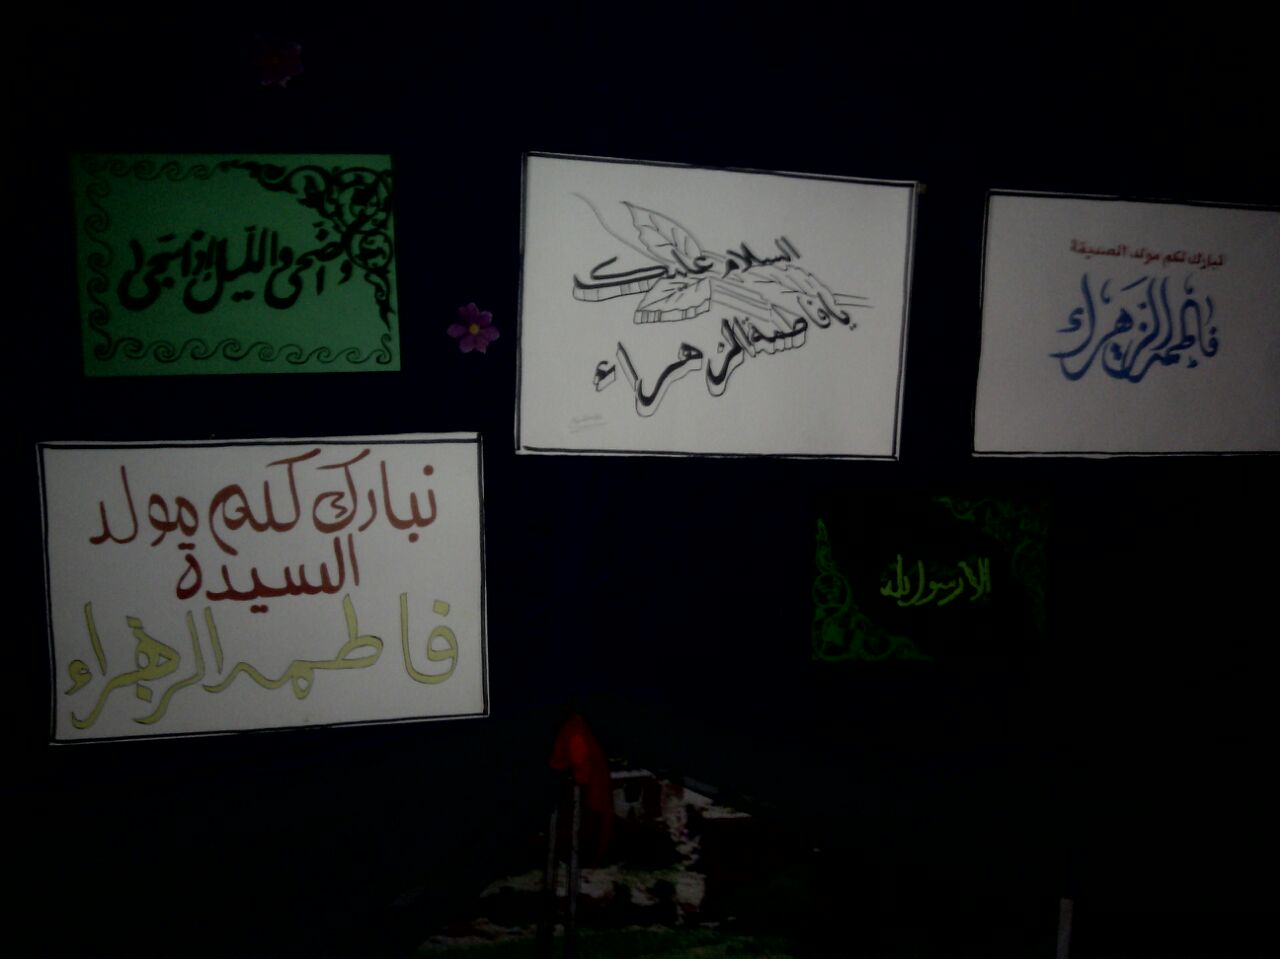 والضحى والليل إذا سجى
السلام عليك
يا فاطمة الزهراء
نبارك لكم مولد الصديقة
فاطمة الزهراء
نبارك لكم مولد
السيدة
فاطمه الزهراء
الا رسول الله